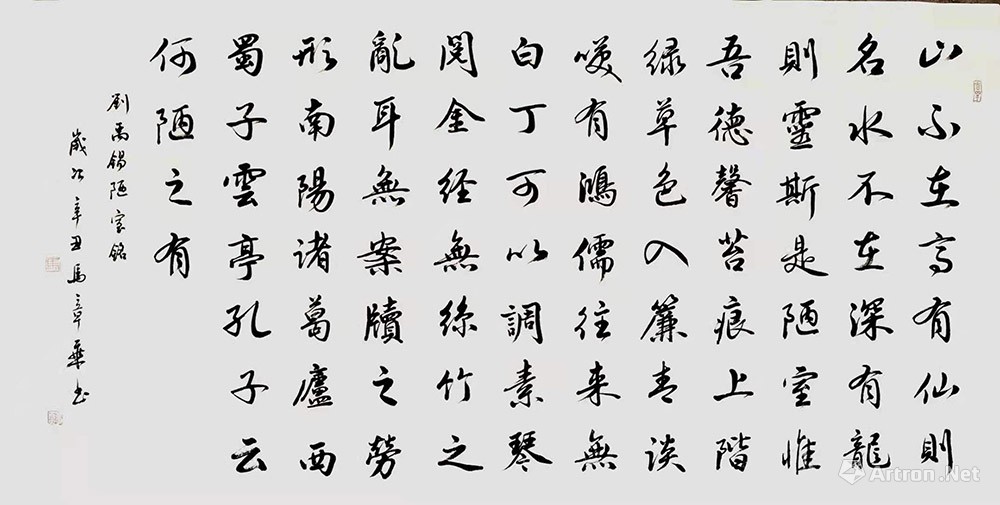 山不在高有仙則
名水不在深有龍
則靈斯是陋室惟
吾德馨苔痕上階
緑草色入簾青談
咲有鴻儒往来無
白丁可以調素琴
閱金经無絲竹之
亂耳無案牘之勞
形南陽诸葛廬西
蜀子雲亭孔子云
何陋之有
劉禹錫陋室銘
歲次辛丑馬章華书
Artron.Net